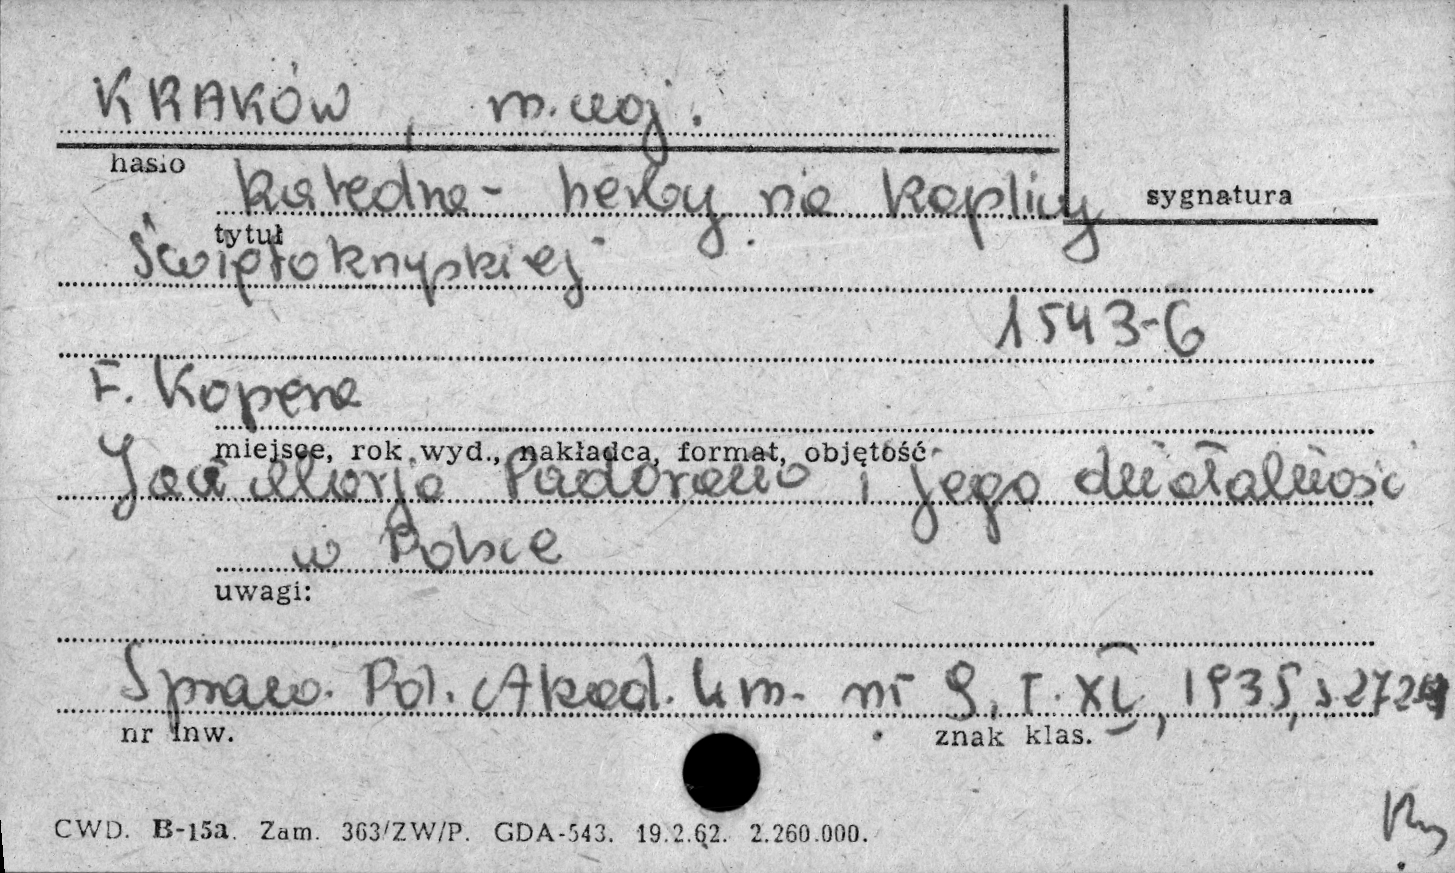 KRAKÓW, m. woj.
hasło
katedra - herby na kaplicy
sygnatura
tytuł
Świętokrzyskiej
1543-6
F. Kopera
miejsce, rok wyd., nakładca, format, objętość
Jan Marja Padovano i jego działalność
w Polsce
uwagi:
Spraw. Pol. Akad. Um. nr 9, T. XL, 1935, s.
nr inw.
znak klas.
CWD. B-15a. Zam. 363/ZW/P. GDA-543. 19.2.62. 2.260.000.